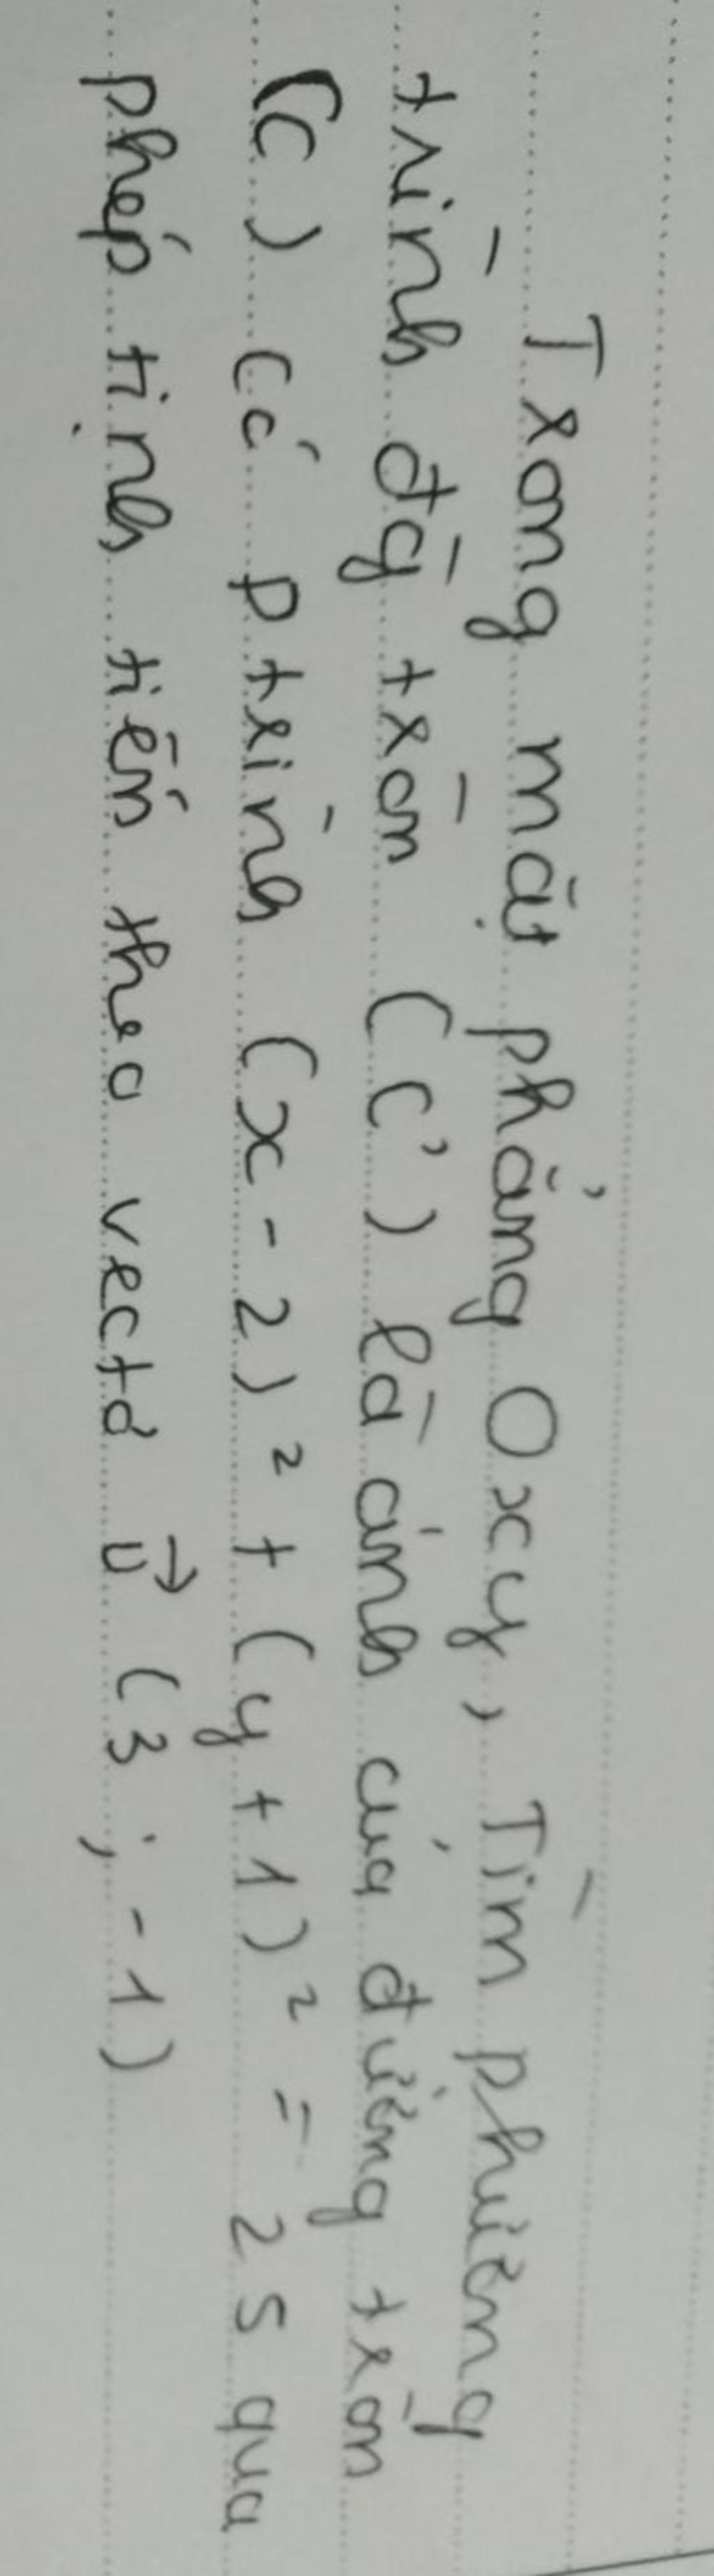 Trong mặt phẳng Oxy, Tìm phương
trình đg tròn (C') là ảnh của đường tròn
(C) có ptrình (x - 2)² + (y + 1)² = 25 qua
phép tịnh tiến theo vectơ u⃗ (3 ; -1)